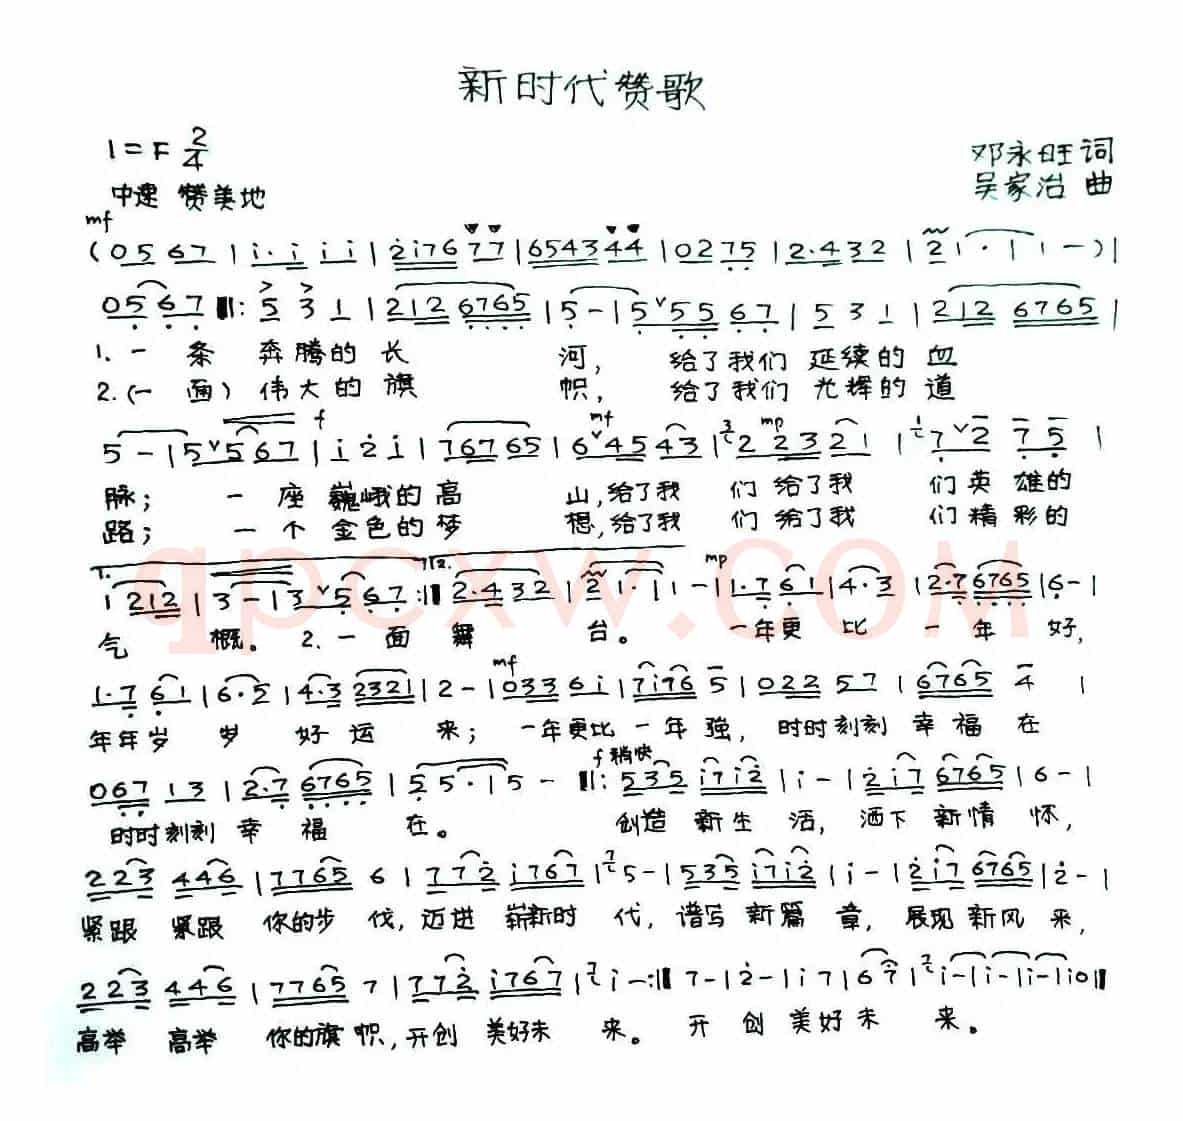 新时代赞歌
1=F 2/4
邓永旺词
中速 赞美地
吴家治曲
mf
(0567|i·iii|2i7677|654344|0275|2·432|2i·|i i-)|
0567‖:531|2126765|5-|55567|531|2126765|
1.一条奔腾的长河，给了我们延续的血
2.(一面)伟大的旗帜，给了我们光辉的道
f mf mp
5-|55567|i2i|76765|64543|22321|7275|
脉；一座巍峨的高山,给了我们给了我们英雄的
路；一个金色的梦想,给了我们给了我们精彩的
1. 2. mp
1212|3-|3567:‖2·432|2i·i|i-|1·761|4·3|2·76765|6-|
气概。2.一面舞台。一年更比一年好,
mf
1·761|6·5|4·32321|2-|03361|7i765|02257|67654|
年年岁岁好运来；一年更比一年强，时时刻刻幸福在
f稍快
06713|2·76765|55·|5-‖:535i7i2|i-|2i76765|6-|
时时刻刻幸福在。创造新生活，洒下新情怀，
223446|77656|772i767|5-|535i7i2|i-|2i76765|2-|
紧跟紧跟你的步伐,迈进崭新时代,谱写新篇章,展现新风采，
223446|77657|772i767|i-:‖7-|2-|i7|67|i-|i-|i-|i0‖
高举高举你的旗帜,开创美好未来。开创美好未来。
qpcxw.com